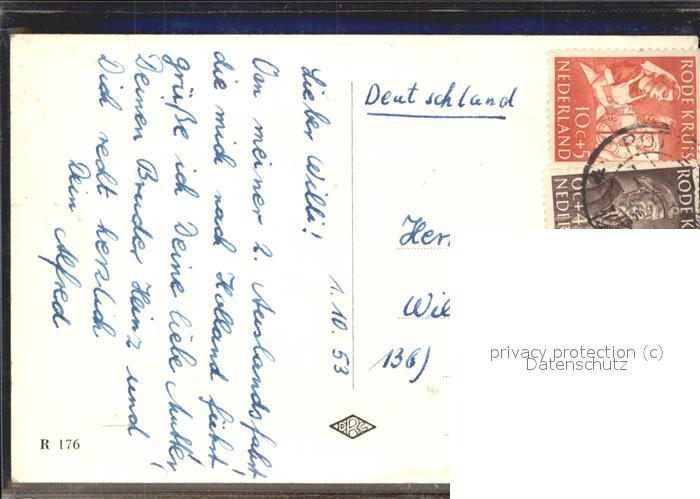 Lieber Willi!
1. 10. 53
Von meiner 2. Auslandsfahrt
die mich nach Holland führt
grüße ich Deine liebe Mutter,
Deinen Bruder Heinz und
Dich recht herzlich
Dein Alfred
R 176
Deutschland
Her
Wil
136)
RODE KRUIS
10 C+5
NEDERLAND
RODE K
0 C+4
NEDER
privacy protection (c)
Datenschutz